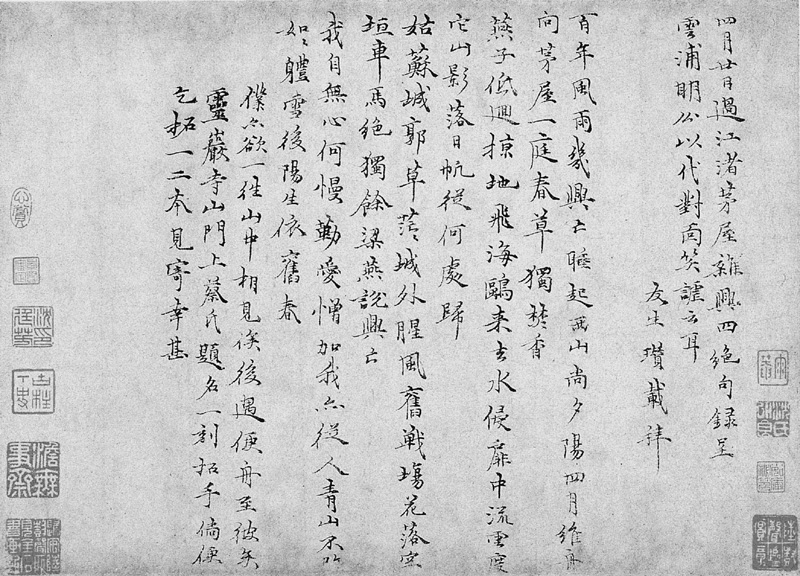 四月廿日過江渚茅屋雜興四絕句錄呈
雲浦明公以代對面笑謔云耳
友生瓚載拜
百年風雨幾興亡睡起西山尚夕陽四月維舟
向茅屋一庭春草獨焚香
燕子低迴掠地飛海鷗来去水侵扉中流雲度
它山影落日帆從何處歸
姑蘇城郭草茫〻城外腥風舊戰場花落空
垣車馬絕獨餘梁燕說興亡
我自無心何慢勤愛憎加我亦從人青山不改
如〻體雪後陽生依舊春
僕亦欲一往山中相見俟後遇便舟至彼矣
靈巖寺山門上蔡氏題名一刻拓手倘便
乞拓一二本見寄幸甚